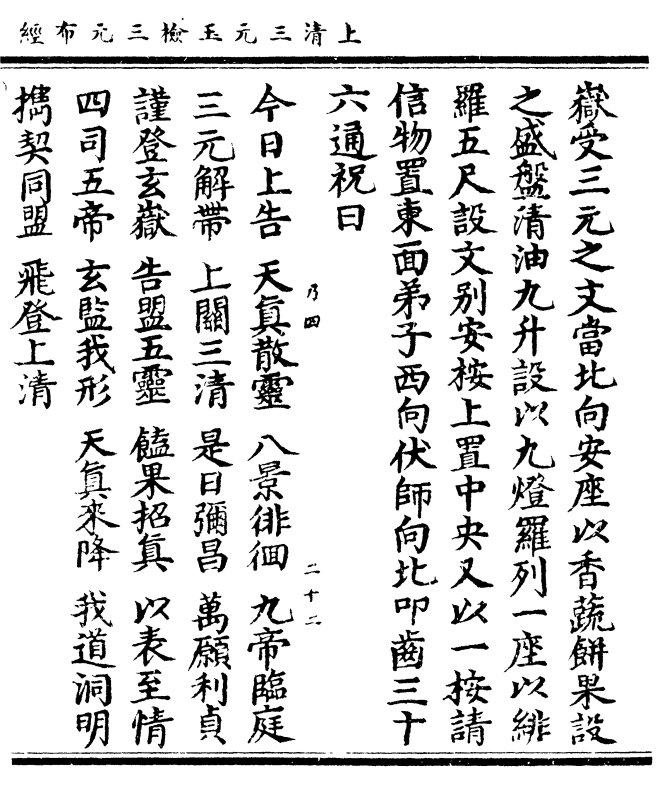 上清三元玉檢三元布經
嶽受三元之文當北向安座以香蔬餅果設
之盛盤清油九升設以九燈羅列一座以緋
羅五尺設文別安按上置中央又以一按請
信物置東面弟子西向伏師向北叩齒三十
六通祝曰
今日上告 天真散靈 八景徘徊 九帝臨庭
三元解帶 上關三清 是日彌昌 萬願利貞
謹登玄嶽 告盟五靈 饁果招真 以表至情
四司五帝 玄監我形 天真來降 我道洞明
擕契同盟 飛登上清
乃四
二十二